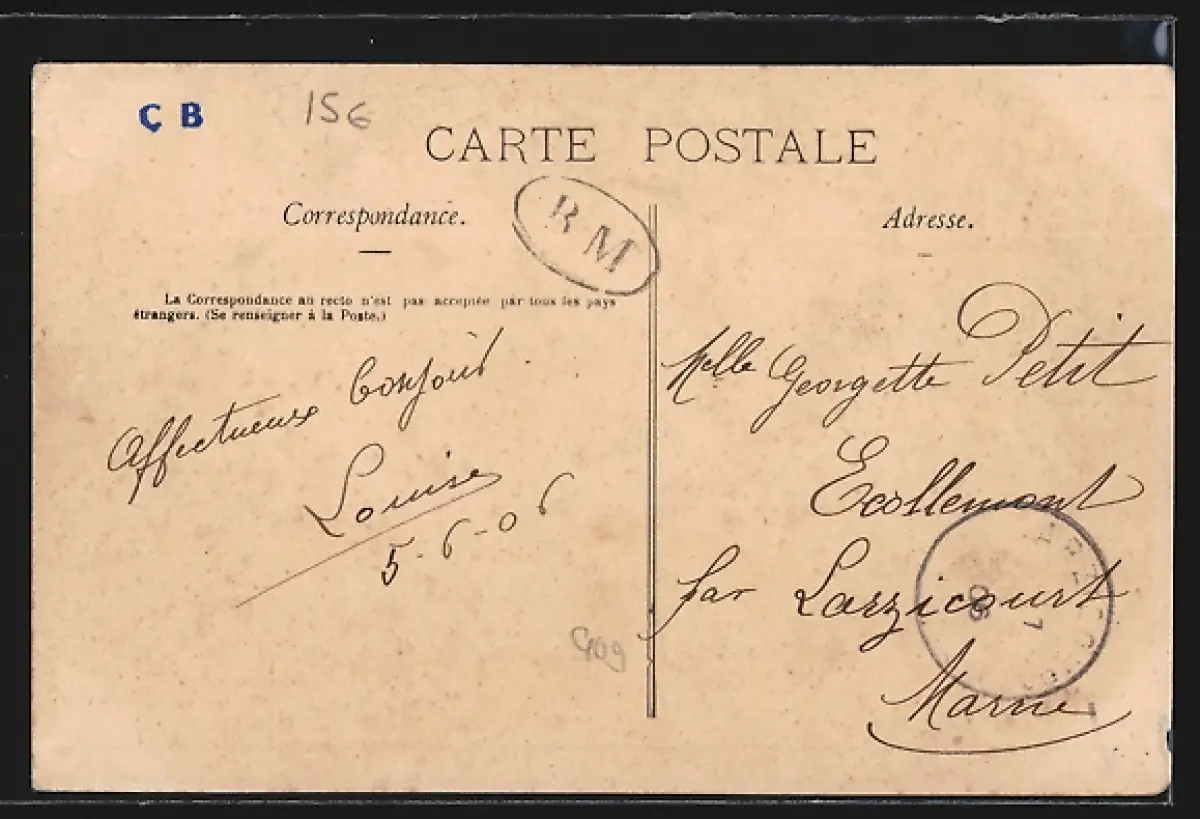 Ç B
156
CARTE POSTALE
Correspondance.
Adresse.
B M
La Correspondance au recto n'est pas acceptée par tous les pays
étrangers. (Se renseigner à la Poste.)
Affectueux bonjour.
Louise
5-6-06
C409
Melle Georgette Petit
Ecollemont
par Larzicourt
Marne